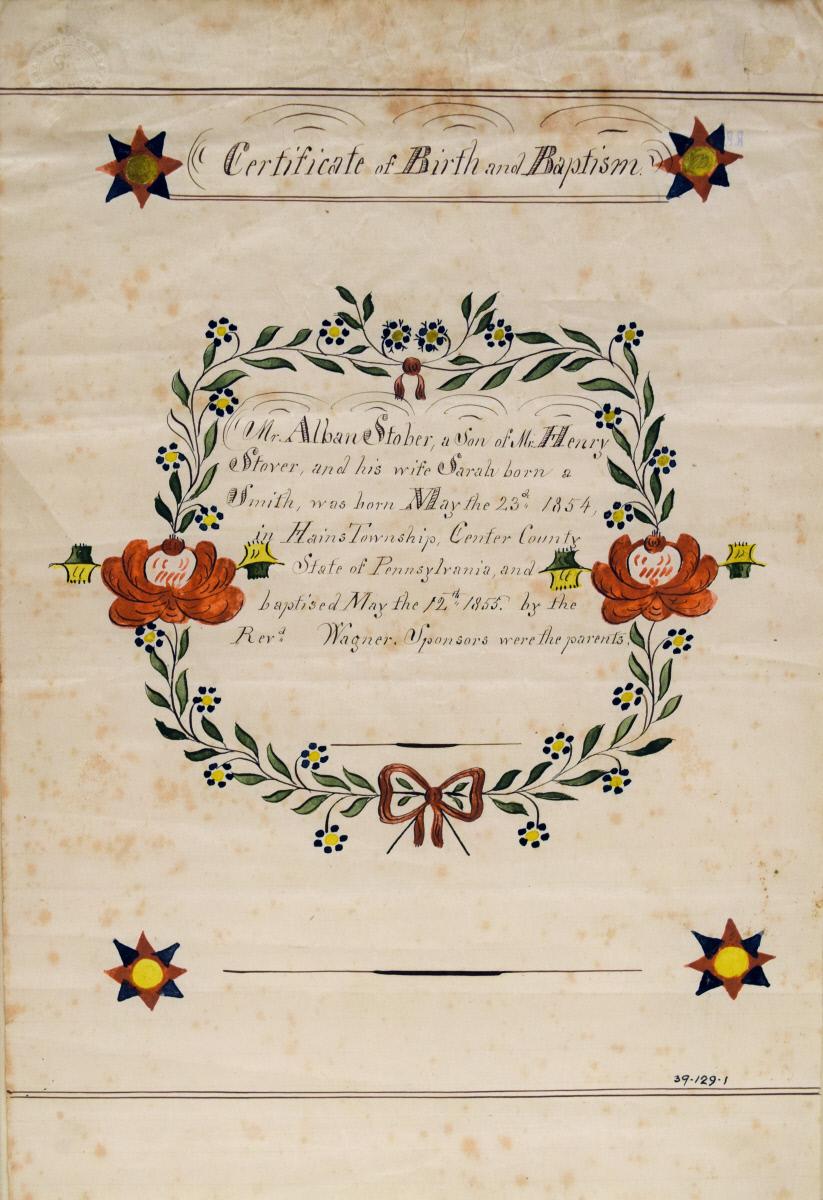 Certificate of Birth and Baptism.
Mr. Alban Stober, a Son of Mr. Henry
Stover, and his wife Sarah born a
Smith, was born May the 23d. 1854,
in Hains Township, Center County
State of Pennsylvania, and
baptised May the 12th. 1855. by the
Revd. Wagner. Sponsors were the parents.
39-129-1